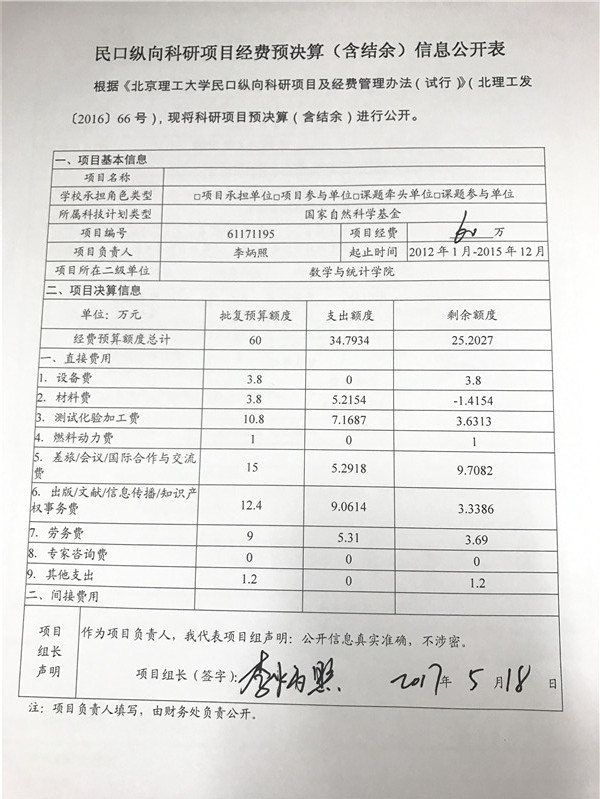 民口纵向科研项目经费预决算（含结余）信息公开表
根据《北京理工大学民口纵向科研项目及经费管理办法（试行）》（北理工发
〔2016〕66 号），现将科研项目预决算（含结余）进行公开。
一、项目基本信息
项目名称
学校承担角色类型 □项目承担单位□项目参与单位□课题牵头单位□课题参与单位
所属科技计划类型 国家自然科学基金
项目编号 61171195 项目经费 60 万
项目负责人 李炳照 起止时间 2012 年 1 月-2015 年 12 月
项目所在二级单位 数学与统计学院
二、项目决算信息
单位：万元 批复预算额度 支出额度 剩余额度
经费预算额度总计 60 34.7934 25.2027
一、直接费用
1. 设备费 3.8 0 3.8
2. 材料费 3.8 5.2154 -1.4154
3. 测试化验加工费 10.8 7.1687 3.6313
4. 燃料动力费 1 0 1
5. 差旅/会议/国际合作与交流
费 15 5.2918 9.7082
6. 出版/文献/信息传播/知识产
权事务费 12.4 9.0614 3.3386
7. 劳务费 9 5.31 3.69
8. 专家咨询费 0 0 0
9. 其他支出 1.2 0 1.2
二、间接费用
项目
组长
声明
作为项目负责人，我代表项目组声明：公开信息真实准确，不涉密。
项目组长（签字）：李炳照 2017年 5 月18 日
注：项目负责人填写，由财务处负责公开。